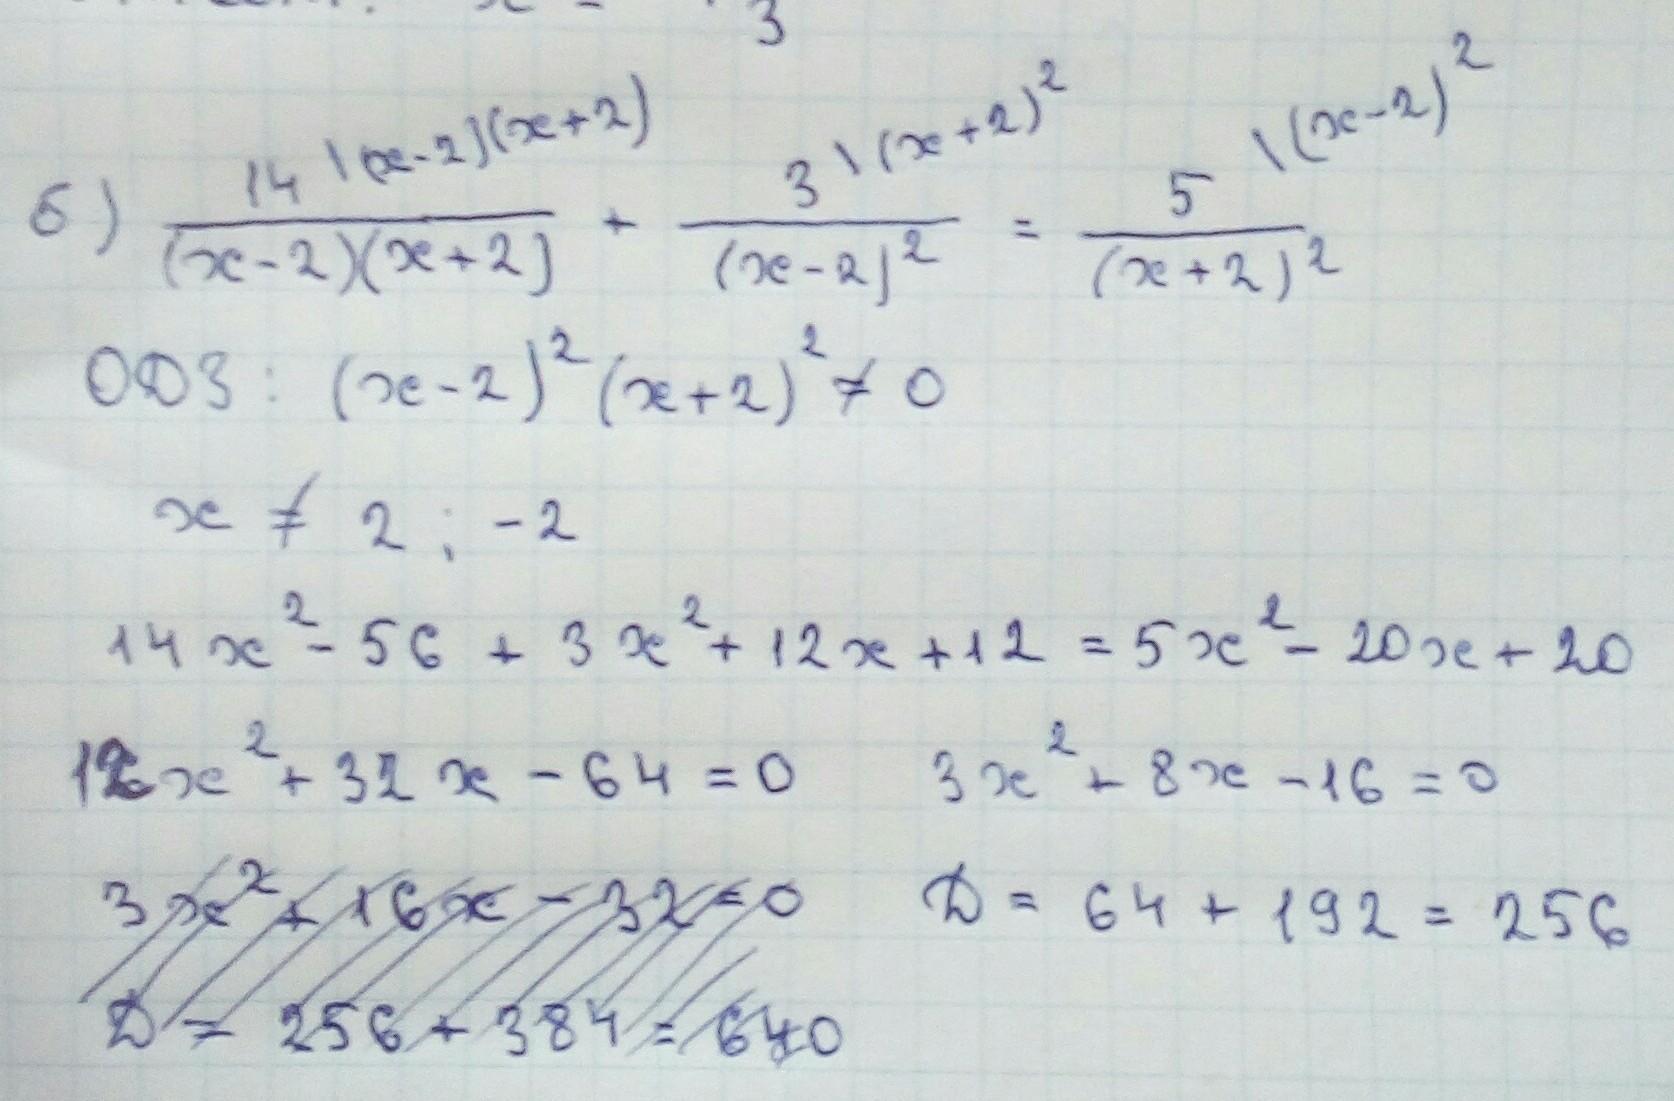 x = 3
б) 14 \(x-2)(x+2) / (x-2)(x+2) + 3 \(x+2)² / (x-2)² = 5 \(x-2)² / (x+2)²
ОДЗ: (x-2)²(x+2)² ≠ 0
x ≠ 2 ; -2
14x² - 56 + 3x² + 12x + 12 = 5x² - 20x + 20
12x² + 32x - 64 = 0    3x² + 8x - 16 = 0
3x² + 16x - 32 = 0    D = 64 + 192 = 256
D = 256 + 384 = 640